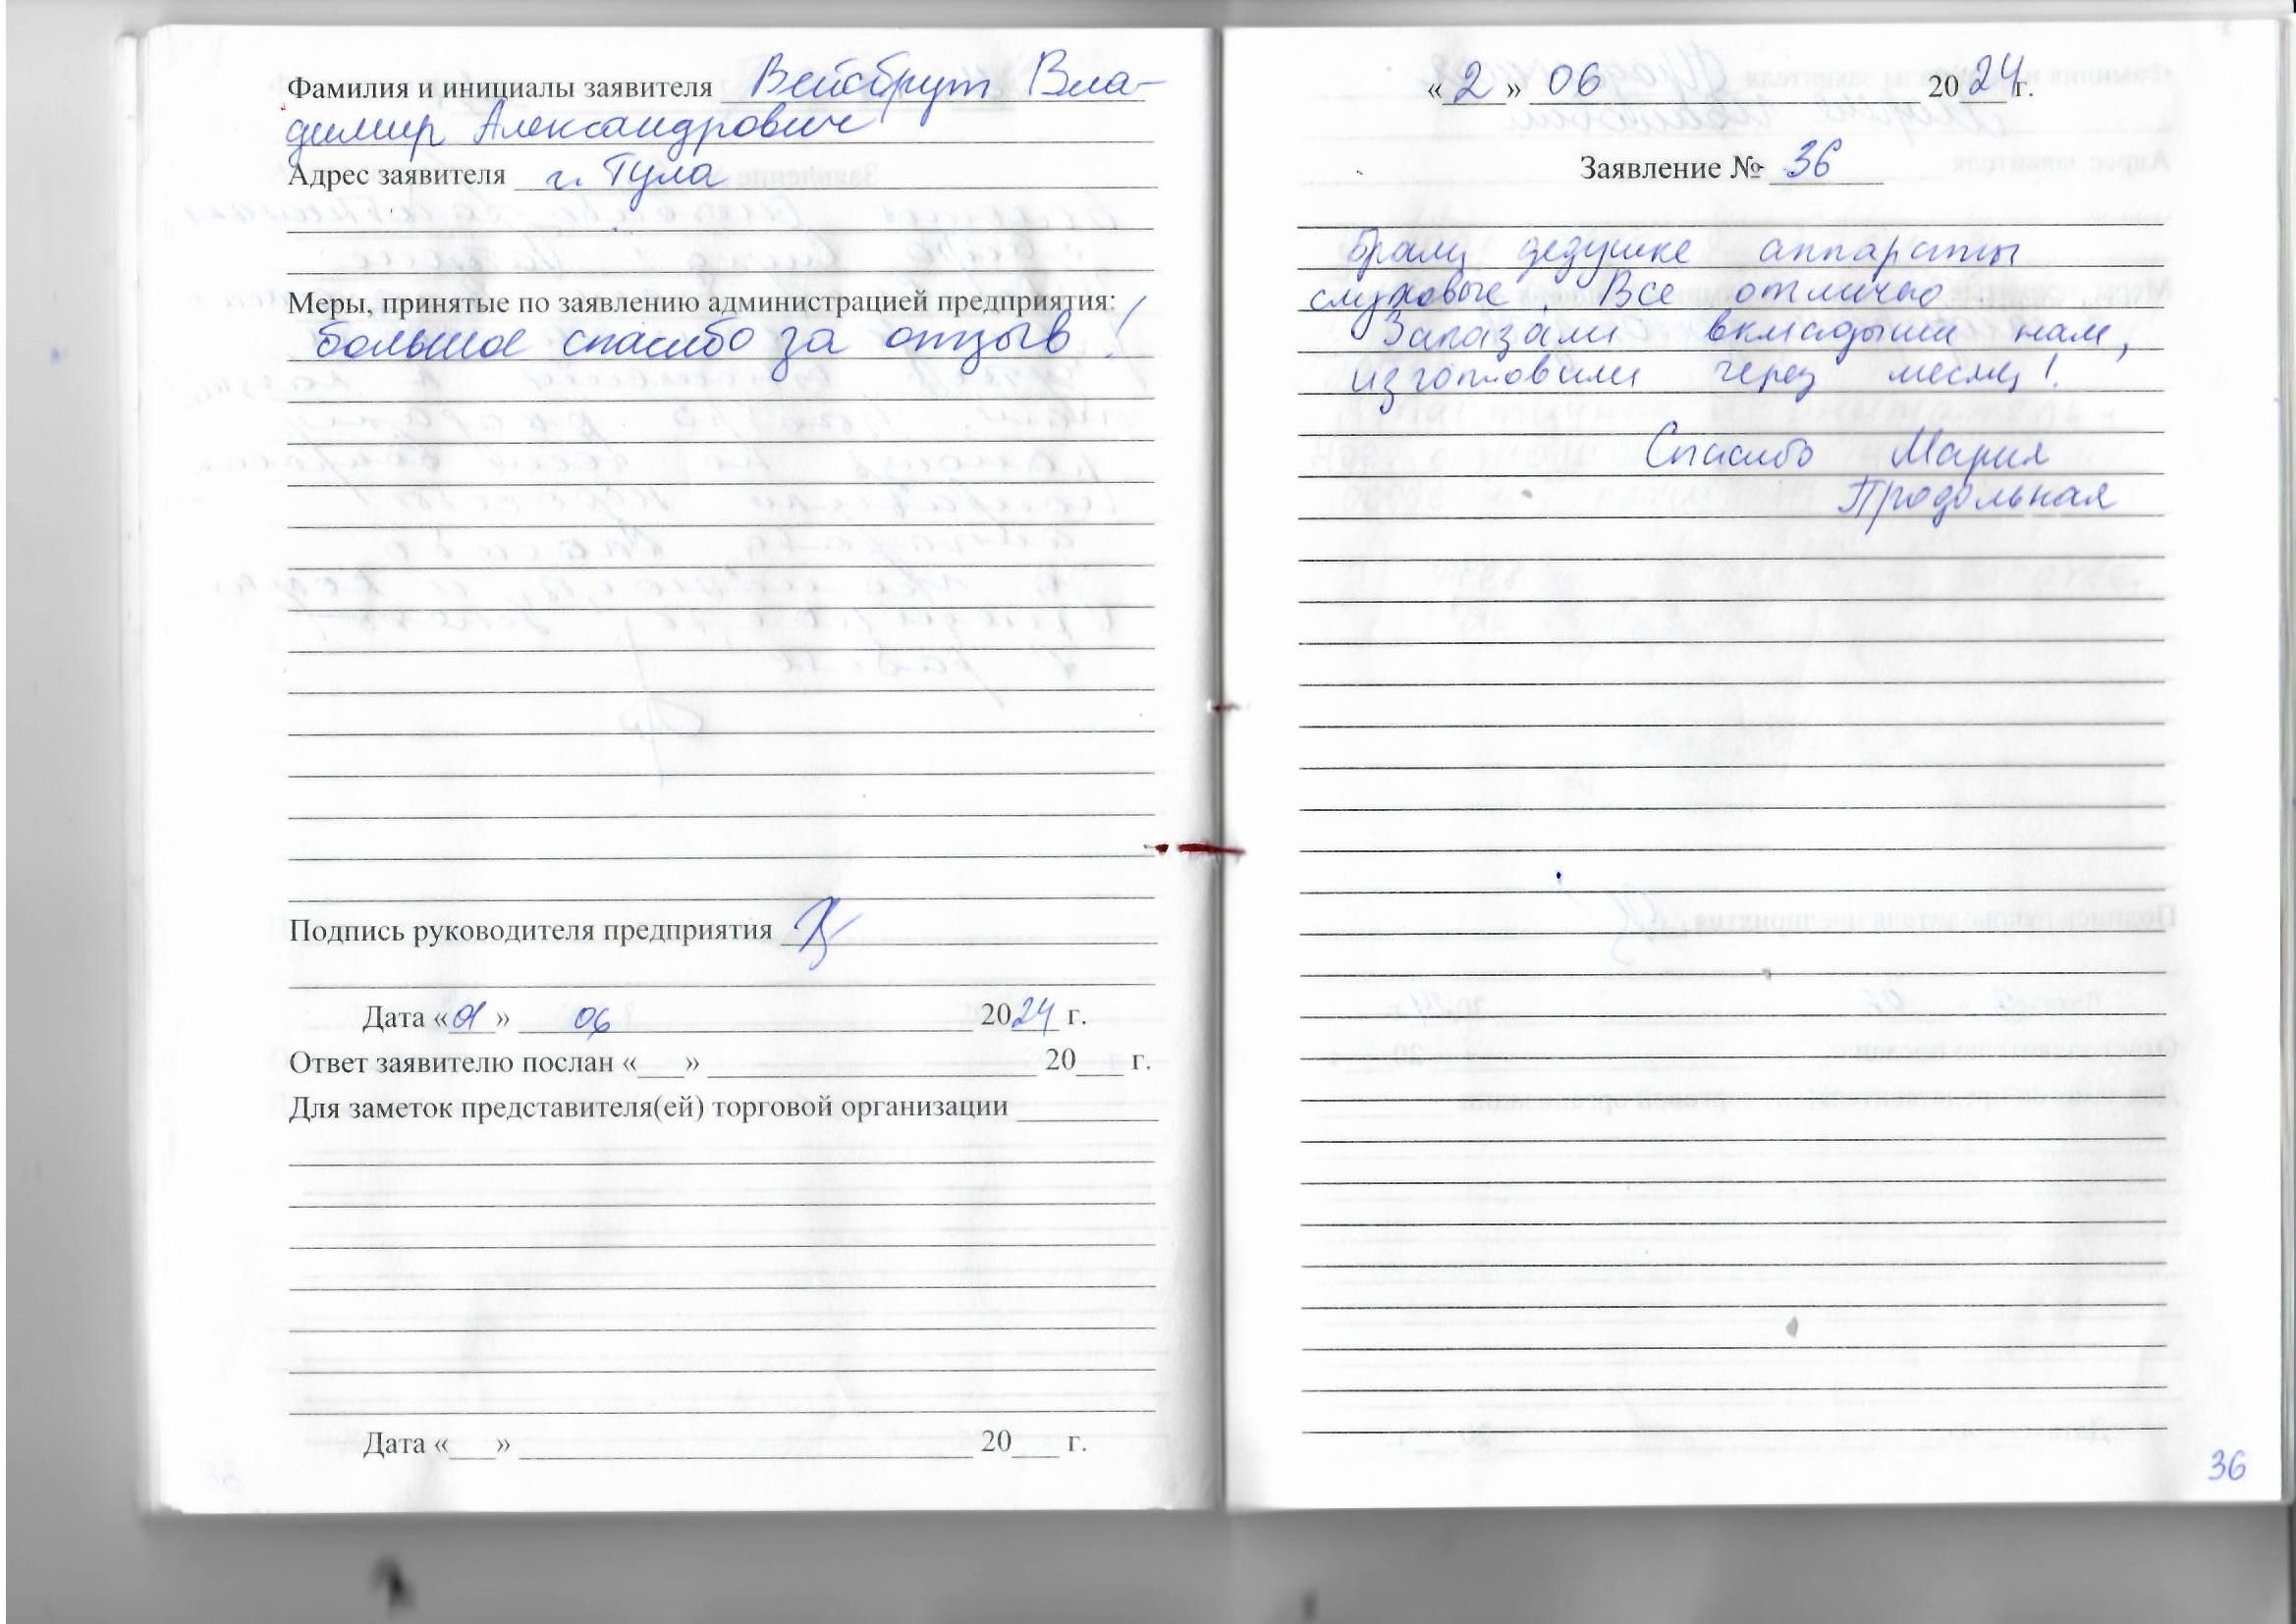 Фамилия и инициалы заявителя Вейсбрут Вла-
димир Александрович
Адрес заявителя г. Тула
Меры, принятые по заявлению администрацией предприятия:
большое спасибо за отзыв!
Подпись руководителя предприятия
Дата «01» 06 2024 г.
Ответ заявителю послан «___» ______ 20___ г.
Для заметок представителя(ей) торговой организации
Дата «___» ______ 20___ г.
«2» 06 2024 г.
Заявление № 36
Брали дедушке аппараты
слуховые. Все отлично.
Заказали вкладыши нам,
изготовили через месяц!
Спасибо Мария
Продольная
36